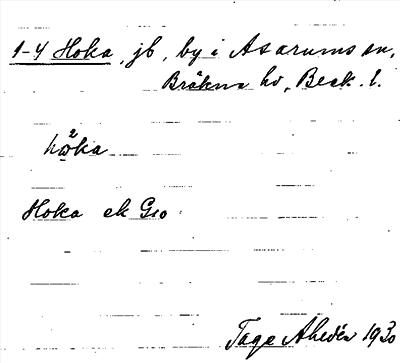 1-4 Hoka, jb, by i Asarums sn,
Bräkne hd, Blek. l.
hω²ka
Hoka ek Geo
Tage Ahldén 1930